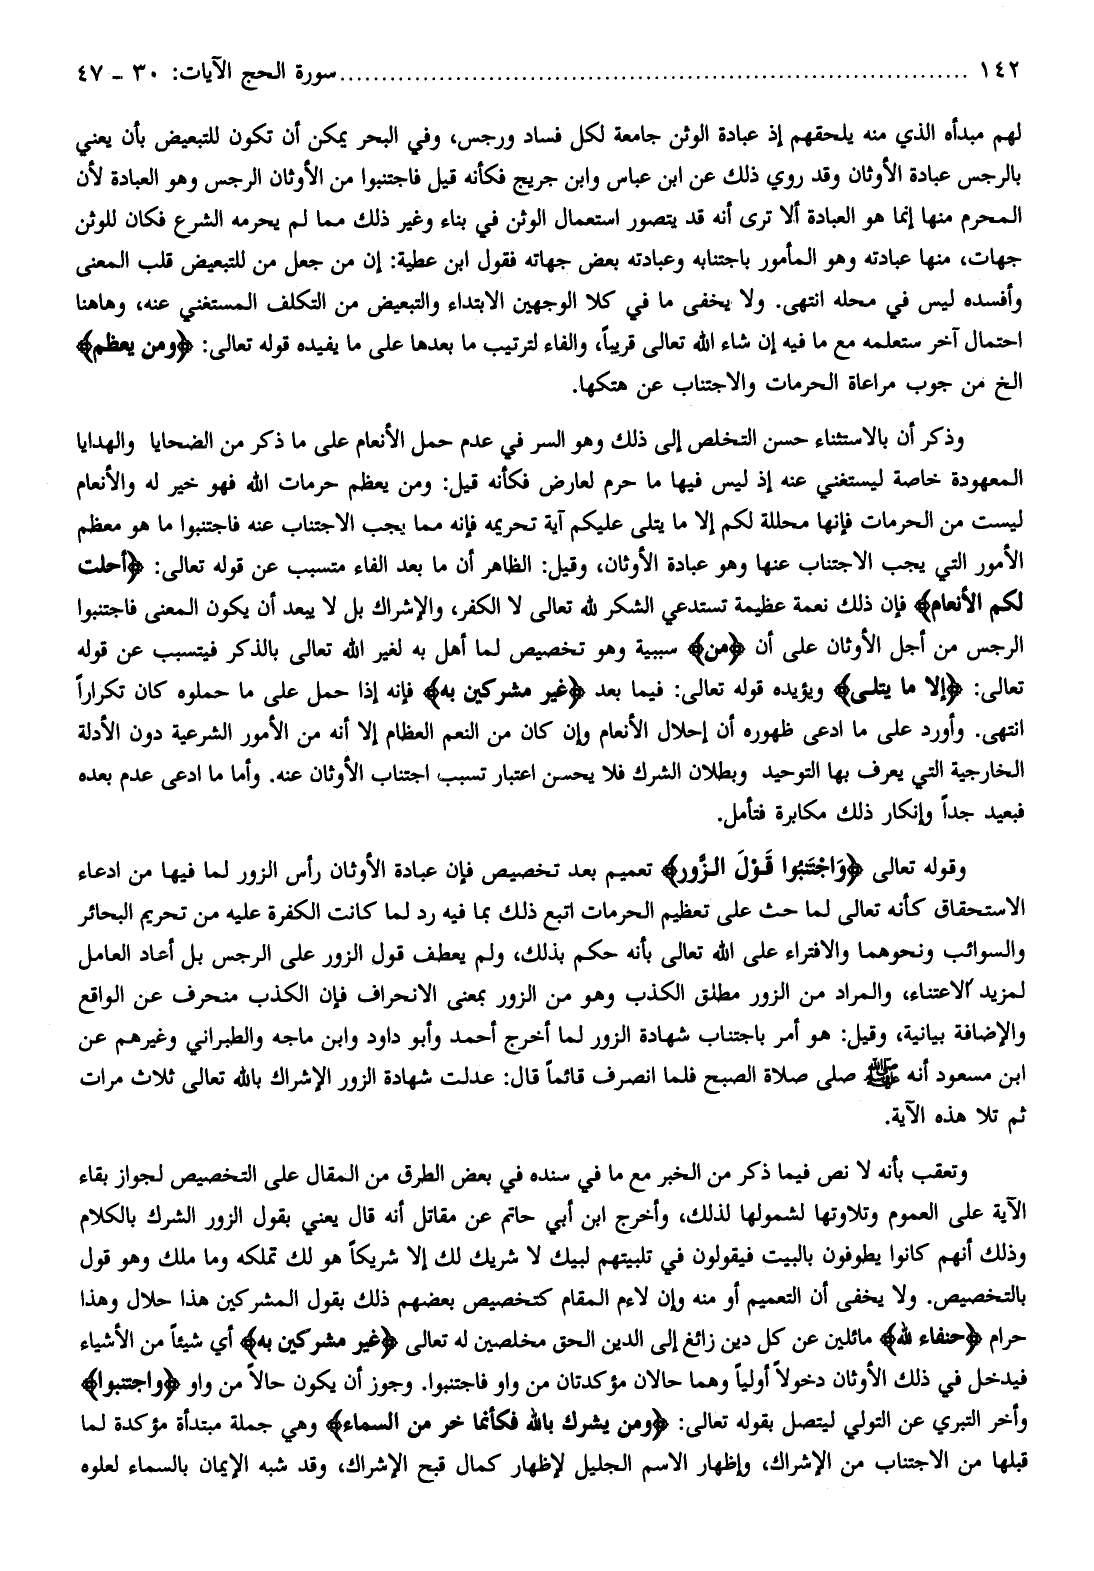 ١٤٢ ............................................................................ سورة الحج الآيات: ٣٠ - ٤٧
لهم مبدأه الذي منه يلحقهم إذ عبادة الوثن جامعة لكل فساد ورجس، وفي البحر يمكن أن تكون للتبعيض بأن يعني
بالرجس عبادة الأوثان وقد روي ذلك عن ابن عباس وابن جريج فكأنه قيل فاجتنبوا من الأوثان الرجس وهو العبادة لأن
المحرم منها إنما هو العبادة ألا ترى أنه قد يتصور استعمال الوثن في بناء وغير ذلك مما لم يحرمه الشرع فكان للوثن
جهات، منها عبادته وهو المأمور باجتنابه وعبادته بعض جهاته فقول ابن عطية: إن من جعل من للتبعيض قلب المعنى
وأفسده ليس في محله انتهى. ولا يخفى ما في كلا الوجهين الابتداء والتبعيض من التكلف المستغني عنه، وهاهنا
احتمال آخر ستعلمه مع ما فيه إن شاء الله تعالى قريباً، والفاء لترتيب ما بعدها على ما يفيده قوله تعالى: ﴿ومن يعظم﴾
الخ من جوب مراعاة الحرمات والاجتناب عن هتكها.
وذكر أن بالاستثناء حسن التخلص إلى ذلك وهو السر في عدم حمل الأنعام على ما ذكر من الضحايا والهدايا
المعهودة خاصة ليستغني عنه إذ ليس فيها ما حرم لعارض فكأنه قيل: ومن يعظم حرمات الله فهو خير له والأنعام
ليست من الحرمات فإنها محللة لكم إلا ما يتلى عليكم آية تحريمه فإنه مما يجب الاجتناب عنه فاجتنبوا ما هو معظم
الأمور التي يجب الاجتناب عنها وهو عبادة الأوثان، وقيل: الظاهر أن ما بعد الفاء متسبب عن قوله تعالى: ﴿أحلت
لكم الأنعام﴾ فإن ذلك نعمة عظيمة تستدعي الشكر لله تعالى لا الكفر، والإشراك بل لا يبعد أن يكون المعنى فاجتنبوا
الرجس من أجل الأوثان على أن ﴿من﴾ سببية وهو تخصيص لما أهل به لغير الله تعالى بالذكر فيتسبب عن قوله
تعالى: ﴿إلا ما يتلى﴾ ويؤيده قوله تعالى: فيما بعد ﴿غير مشركين به﴾ فإنه إذا حمل على ما حملوه كان تكراراً
انتهى. وأورد على ما ادعى ظهوره أن إحلال الأنعام وإن كان من النعم العظام إلا أنه من الأمور الشرعية دون الأدلة
الخارجية التي يعرف بها التوحيد وبطلان الشرك فلا يحسن اعتبار تسبب اجتناب الأوثان عنه. وأما ما ادعى عدم بعده
فبعيد جداً وإنكار ذلك مكابرة فتأمل.
وقوله تعالى ﴿وَاجْتَنِبُوا قَوْلَ الزُّورِ﴾ تعميم بعد تخصيص فإن عبادة الأوثان رأس الزور لما فيها من ادعاء
الاستحقاق كأنه تعالى لما حث على تعظيم الحرمات اتبع ذلك بما فيه رد لما كانت الكفرة عليه من تحريم البحائر
والسوائب ونحوهما والافتراء على الله تعالى بأنه حكم بذلك، ولم يعطف قول الزور على الرجس بل أعاد العامل
لمزيد الاعتناء، والمراد من الزور مطلق الكذب وهو من الزور بمعنى الانحراف فإن الكذب منحرف عن الواقع
والإضافة بيانية، وقيل: هو أمر باجتناب شهادة الزور لما أخرج أحمد وأبو داود وابن ماجه والطبراني وغيرهم عن
ابن مسعود أنه ﷺ صلى صلاة الصبح فلما انصرف قائماً قال: عدلت شهادة الزور الإشراك بالله تعالى ثلاث مرات
ثم تلا هذه الآية.
وتعقب بأنه لا نص فيما ذكر من الخبر مع ما في سنده في بعض الطرق من المقال على التخصيص لجواز بقاء
الآية على العموم وتلاوتها لشمولها لذلك، وأخرج ابن أبي حاتم عن مقاتل أنه قال يعني بقول الزور الشرك بالكلام
وذلك أنهم كانوا يطوفون بالبيت فيقولون في تلبيتهم لبيك لا شريك لك إلا شريكاً هو لك تملكه وما ملك وهو قول
بالتخصيص. ولا يخفى أن التعميم أو منه وإن لاءم المقام كتخصيص بعضهم ذلك بقول المشركين هذا حلال وهذا
حرام ﴿حنفاء لله﴾ مائلين عن كل دين زائغ إلى الدين الحق مخلصين له تعالى ﴿غير مشركين به﴾ أي شيئاً من الأشياء
فيدخل في ذلك الأوثان دخولاً أولياً وهما حالان مؤكدتان من واو فاجتنبوا. وجوز أن يكون حالاً من واو ﴿واجتنبوا﴾
وأخر التبري عن التولي ليتصل بقوله تعالى: ﴿ومن يشرك بالله فكأنما خر من السماء﴾ وهي جملة مبتدأة مؤكدة لما
قبلها من الاجتناب من الإشراك، وإظهار الاسم الجليل لإظهار كمال قبح الإشراك، وقد شبه الإيمان بالسماء لعلوه